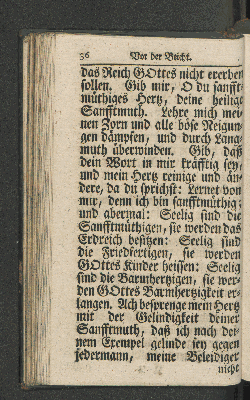 36 Vor der Beicht.
das Reich GOttes nicht ererben
sollen. Gib mir, O du sanfft-
müthiges Hertz, deine heilige
Sanfftmuth. Lehre mich mei-
nen Zorn und alle böse Neigun-
gen dämpfen, und durch Lang-
muth überwinden. Gib, daß
dein Wort in mir kräfftig sey,
und mein Hertz reinige und än-
dere, da du sprichst: Lernet von
mir, denn ich bin sanfftmüthig;
und abermal: Seelig sind die
Sanftmüthigen, sie werden das
Erdreich besitzen: Seelig sind
die Friedfertigen, sie werden
GOttes Kinder heissen: Seelig
sind die Barmhertzigen, sie wer-
den GOttes Barmhertzigkeit er-
langen. Ach besprenge mein Hertz
mit der Gelindigkeit deiner
Sanfftmuth, daß ich nach dei-
nem Exempel gelinde sey gegen
jedermann, meine Beleidiger
nicht